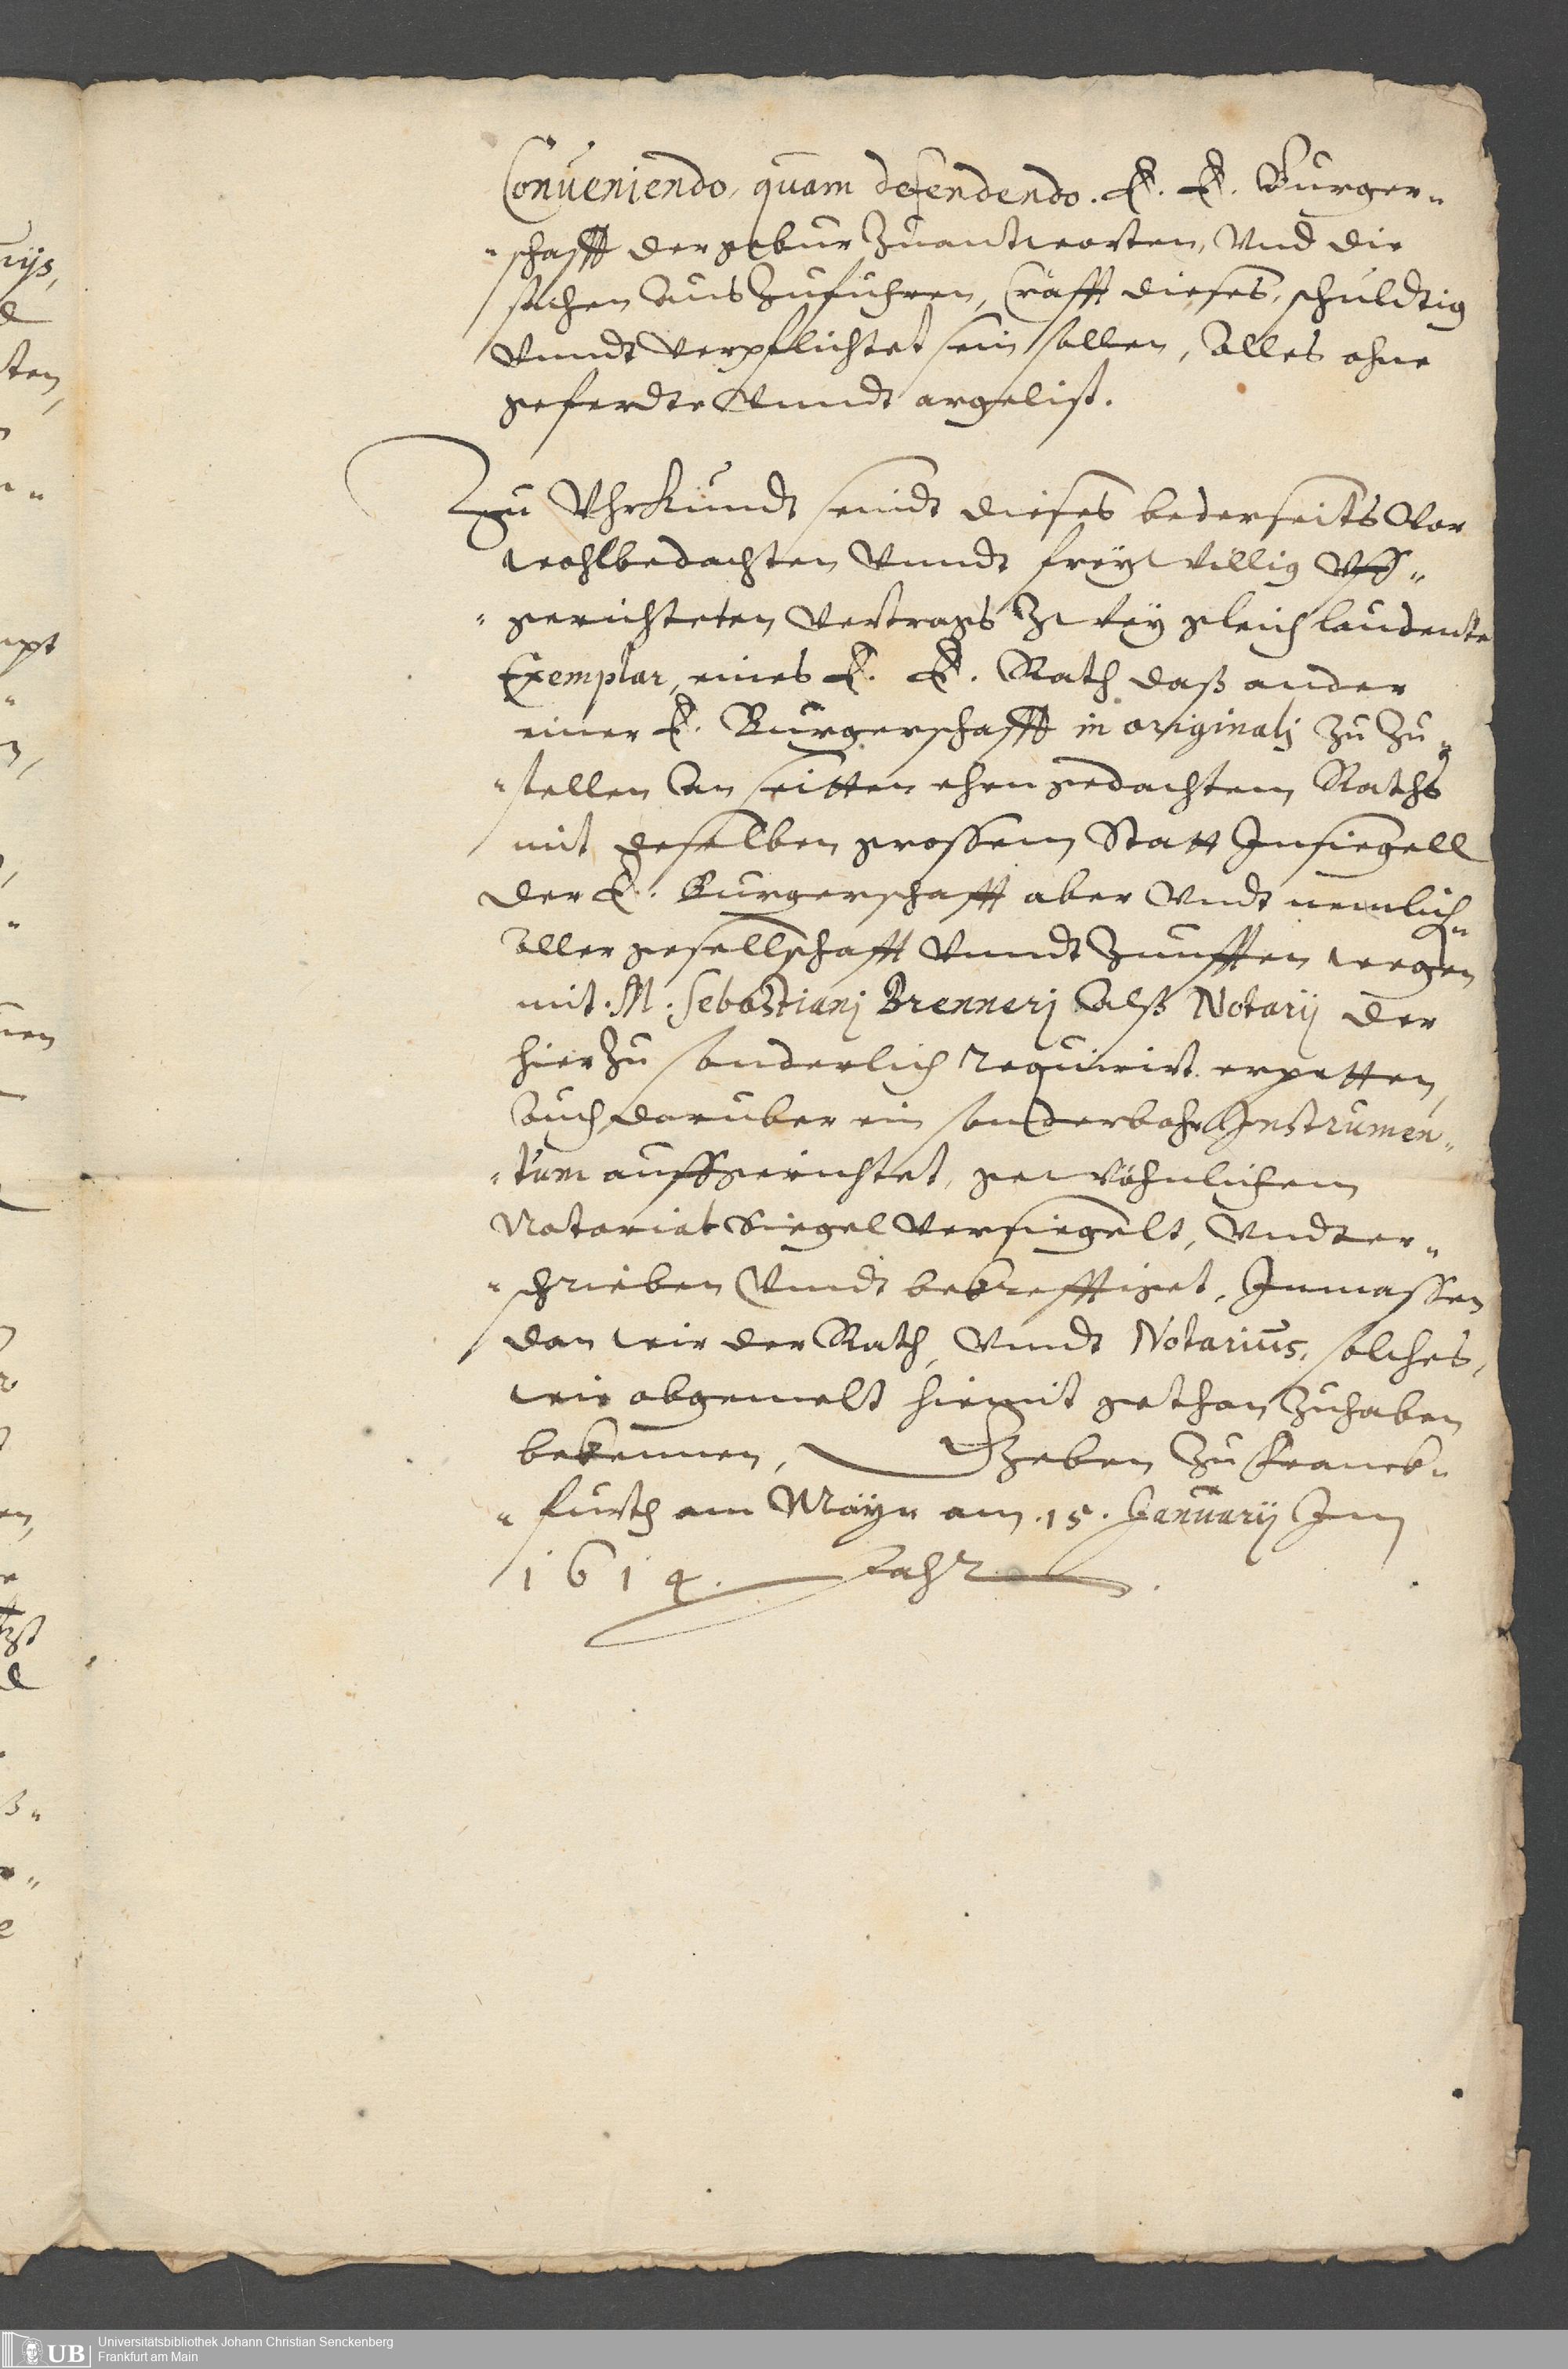 Conueniendo, quam defendendo. E. E. Burger„
„schafft der gebur Zuantworten, Vnd die
sachen auszufuhren, Crafft dieses, schuldtig
Vnndt verpflichtet sein sollen, Alles ohne
geferdte Vnndt argelist.
Zu Vhrkundt seindt dieses bederseits Vor
wohlbedachten Vnndt freywillig vff„
„gerichteten Vertrags Zwey gleich laudente
Exemplar, eines E. E. Rath daß ander
einer E. Burgerschafft in originalj zu zu„
„stellen an seitten ehrngedachtem Raths
mit deselben grossem Statt Insiegell
der E. Burgerschafft aber Vndt nemlich„
aller gesellschafft Vnndt Zunfften wegen
mit. M. Sebastianj Brennerj Alß Notarij der
hierzu sonderlich requirirt erpetten,
Auch daruber ein sonderbahr Instrumen„
„tum auffgerichtet, gewöhnlichem
Notariat Siegel Versiegelt, Vndter„
„schrieben Vnndt bekrefftiget, Inmassen
dan wir der Rath, Vnndt Notarius, solches,
wie obgemelt hiemit gethan Zuhaben
bekennen, Geben Zu Franck„
„furth am Mayn am .15. January Im
1614. Jahr.
uys,
ten,
Universitätsbibliothek Johann Christian Senckenberg
Frankfurt am Main
UB